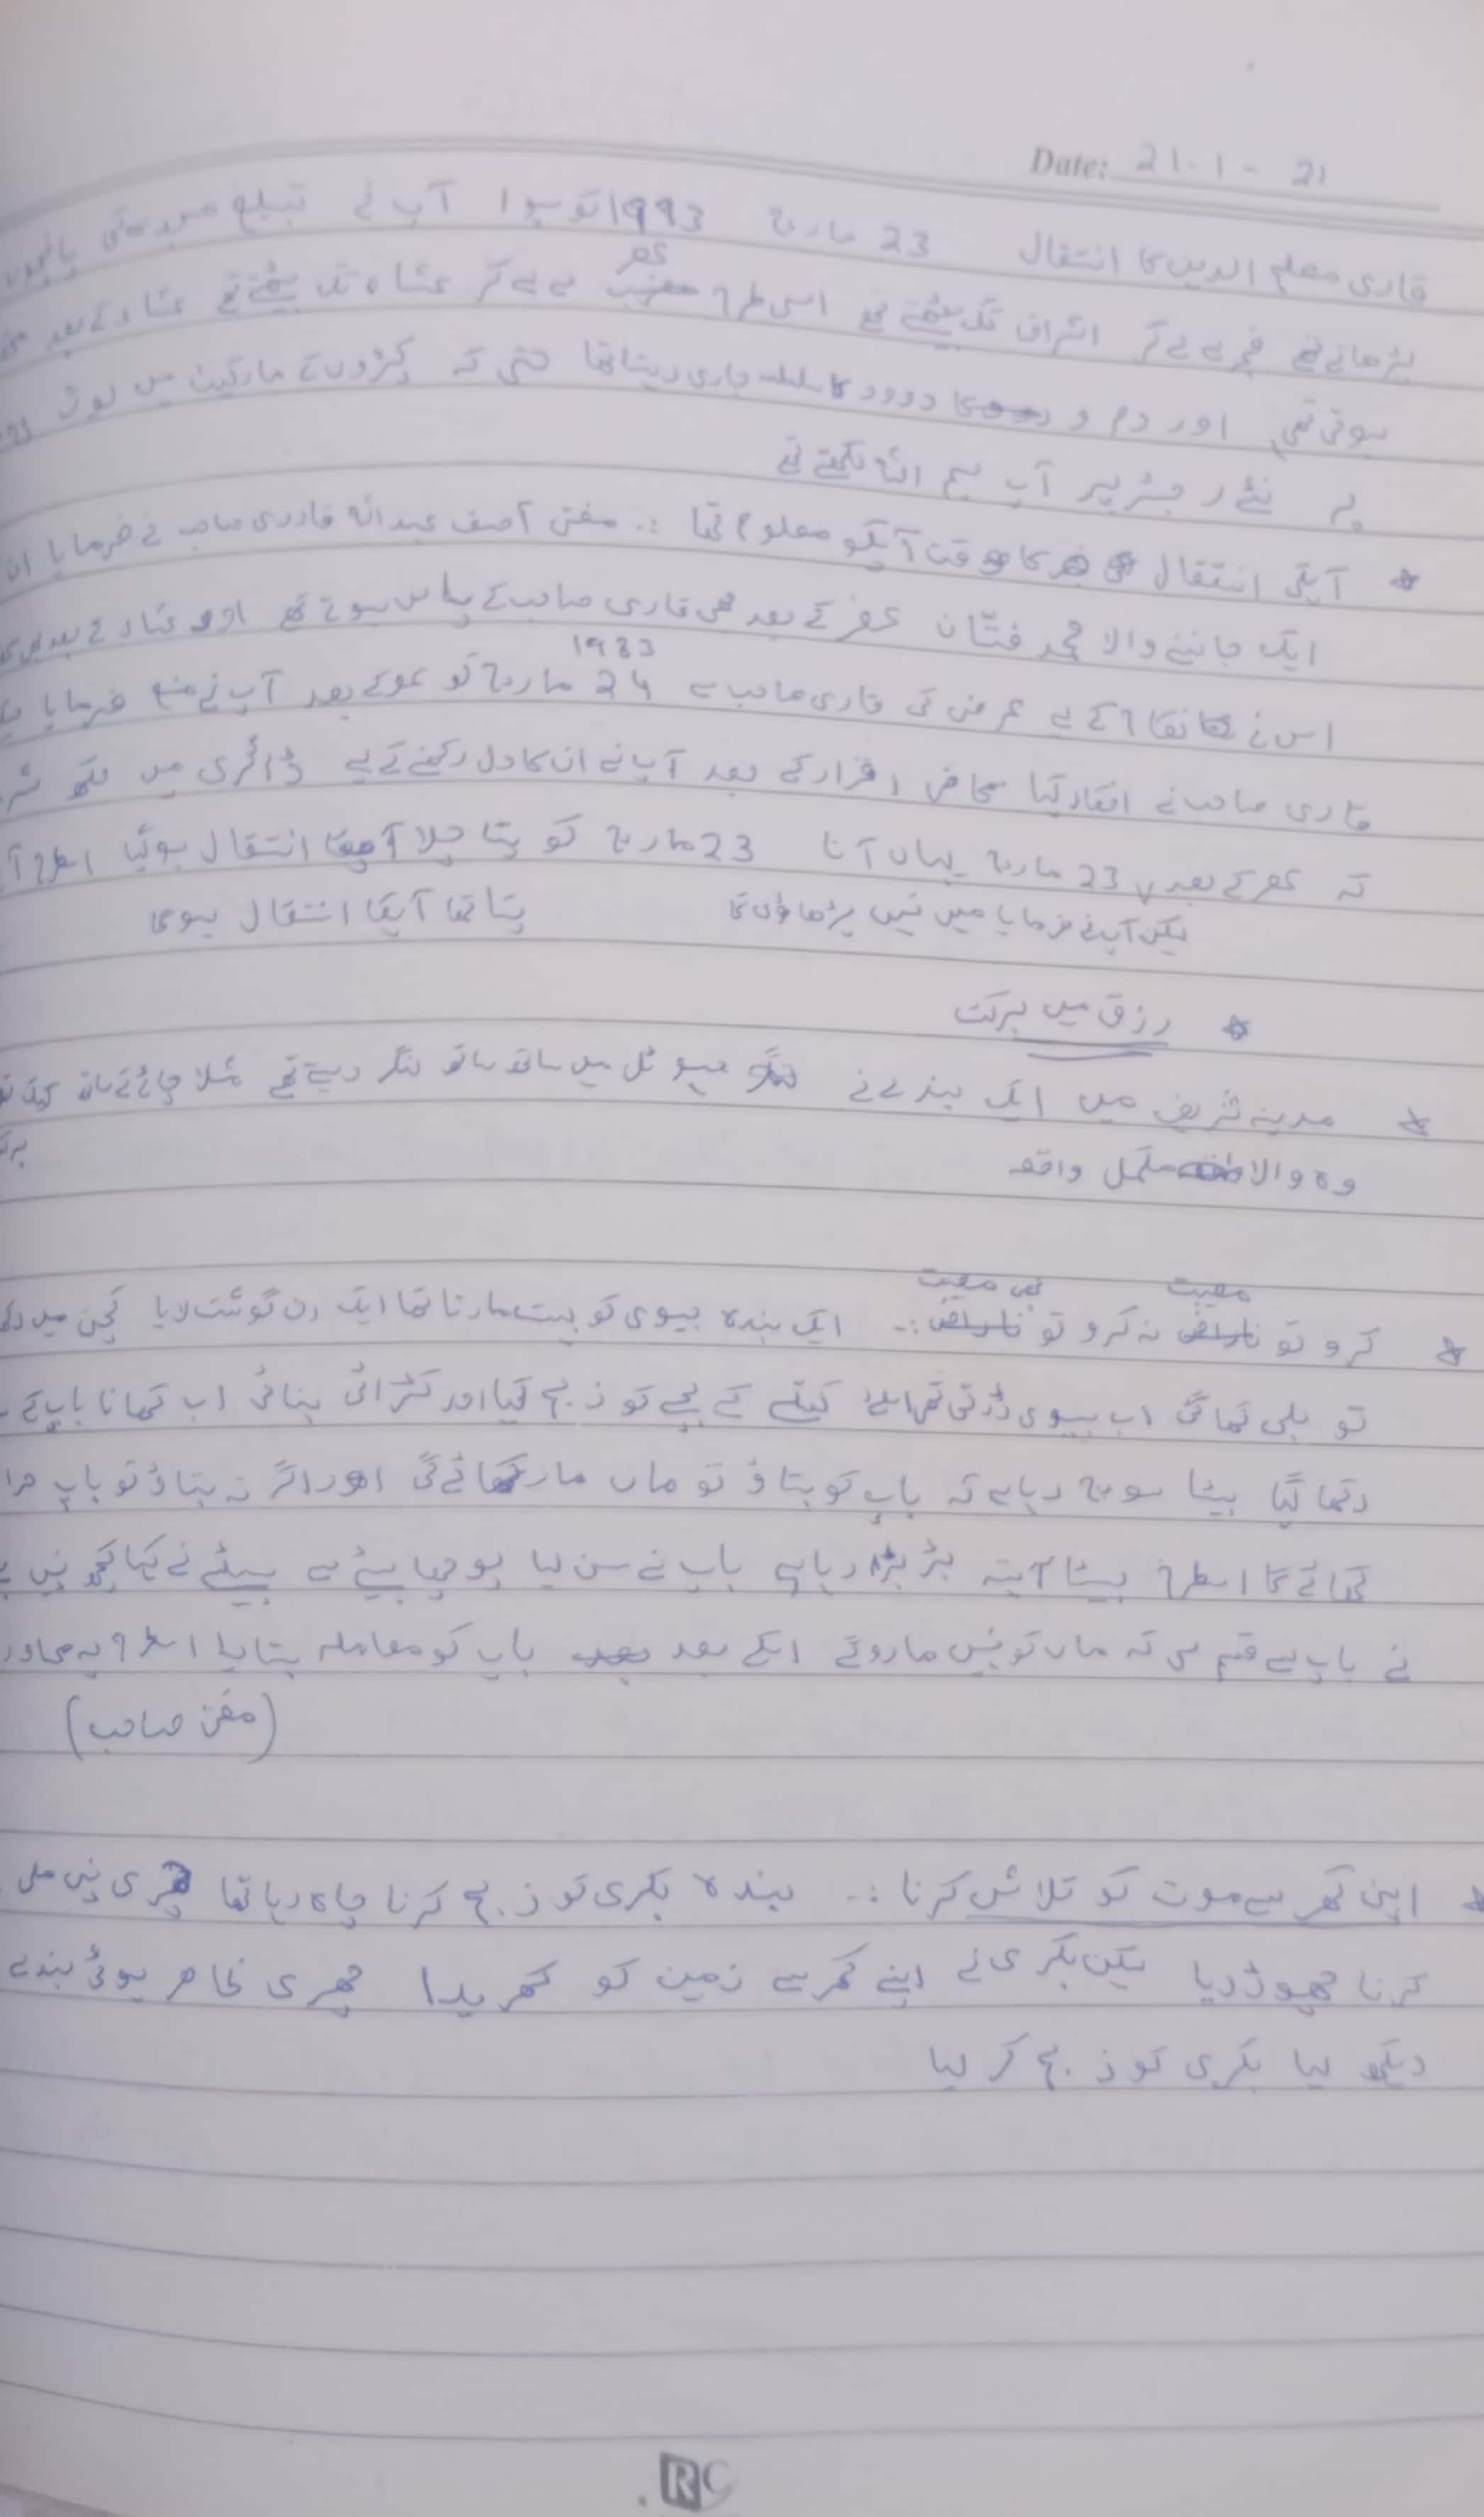 Date: 21-1-21
قاری مصلح الدین کا انتقال 23 مارچ 1993 کو ہوا آپ نے تبلیغ
پڑھاتے تھے فجر سے لے کر اشراق تک بیٹھتے تھے اسی طرح عصر سے لے کر عشاء تک بیٹھتے تھے عشاء کے بعد
ہوتی تھی اور دم و درود کا سلسلہ جاری رہتا تھا حتی کہ کپڑوں کے مارکیٹ میں لوگ
نئے رجسٹر پر آپ بسم اللہ لکھتے تھے
* آپکی انتقال کا وقت آپکو معلوم تھا :. مفتی آصف عبداللہ قادری صاحب نے فرمایا ان
ایک جاننے والا محمد عصر کے بعد بھی قاری صاحب کے پاس ہوتے تھے اور عشاء کے بعد بھی
اس نے نکاح کے لیے عرض کی قاری صاحب سے 24 مارچ 1983 کو عصر کے بعد آپ نے منع فرمایا
قاری صاحب نے انکار کیا کافی اصرار کے بعد آپ نے ان کا دل رکھنے کے لیے ڈائری میں لکھ
کہ عصر کے بعد 23 مارچ یہاں آنا 23 مارچ کو پتا چلا آپکا انتقال ہوگیا اسطرح
لیکن آپ نے فرمایا میں نہیں پڑھاؤں گا پتا تھا آپکا انتقال ہوگا
* رزق میں برکت
* مدینہ شریف میں ایک بندے نے ہوٹل میں ساتھ ساتھ لنگر دیتے تھے مثلا چائے کے ساتھ
وہ والا مکمل واقعہ
* کرو تو مصیبت نہ کرو تو بھی مصیبت :. ایک بندہ بیوی کو بہت مارتا تھا ایک دن گوشت لایا کچن میں
تو بلی کھا گئی اب بیوی ڈرتی تھی اسلئے کتے کے بچے کو ذبح کیا اور کڑائی بنائی اب کھانا باپ کے
رکھا گیا بیٹا سوچ رہا ہے کہ باپ کو بتاؤ تو ماں مار کھائے گی اور اگر نہ بتاؤ تو باپ
کھائے گا اسطرح بیٹا آہستہ بڑبڑا رہا ہے باپ نے سن لیا پوچھا بیٹے سے بیٹے نے کہا کچھ نہیں
نے باپ سے قسم لی کہ ماں کو نہیں مارو گے اسکے بعد باپ کو معاملہ بتایا اسطرح یہ
(مفتی صاحب)
* اپنی کھر سے موت کو تلاش کرنا :. بندہ بکری کو ذبح کرنا چاہ رہا تھا چھری نہیں ملی
کرنا چھوڑ دیا لیکن بکری نے اپنے کھر سے زمین کو کھریدا چھری ظاہر ہوئی بندے
دیکھ لیا بکری کو ذبح کر لیا
RC